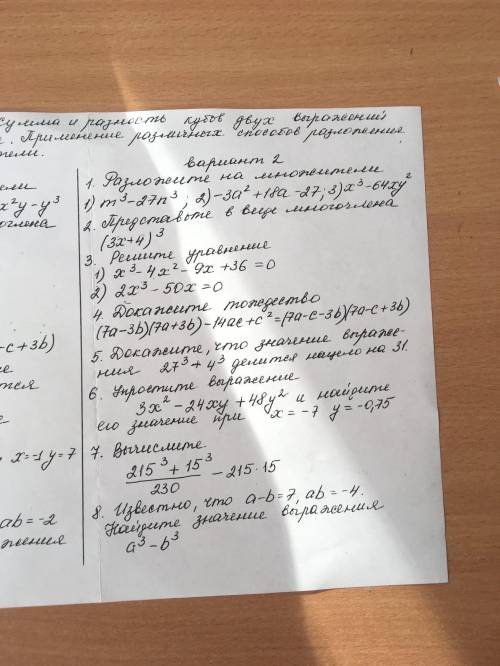 Сумма и разность кубов двух выражений
. Применение различных способов разложения
тели.
тели
x²y - y³
очлена
- c + 3b)
ие
тся
е
x = -1 y = 7
ab = -2
ажения
Вариант 2
1. Разложите на множители
1) m³ - 27n³ ; 2) -3a² + 18a - 27; 3) x³ - 64xy²
2. Представьте в виде многочлена
(3x + 4)³
3. Решите уравнение
1) x³ - 4x² - 9x + 36 = 0
2) 2x³ - 50x = 0
4. Докажите тождество
(7a - 3b)(7a + 3b) - 14ac + c² = (7a - c - 3b)(7a - c + 3b)
5. Докажите, что значение выраже-
ния 27³ + 4³ делится нацело на 31.
6. Упростите выражение
3x² - 24xy + 48y² и найдите
его значение при x = -7 y = -0,75
7. Вычислите
215³ + 15³
/ 230 - 215 · 15
8. Известно, что a - b = 7, ab = -4.
Найдите значение выражения
a³ - b³